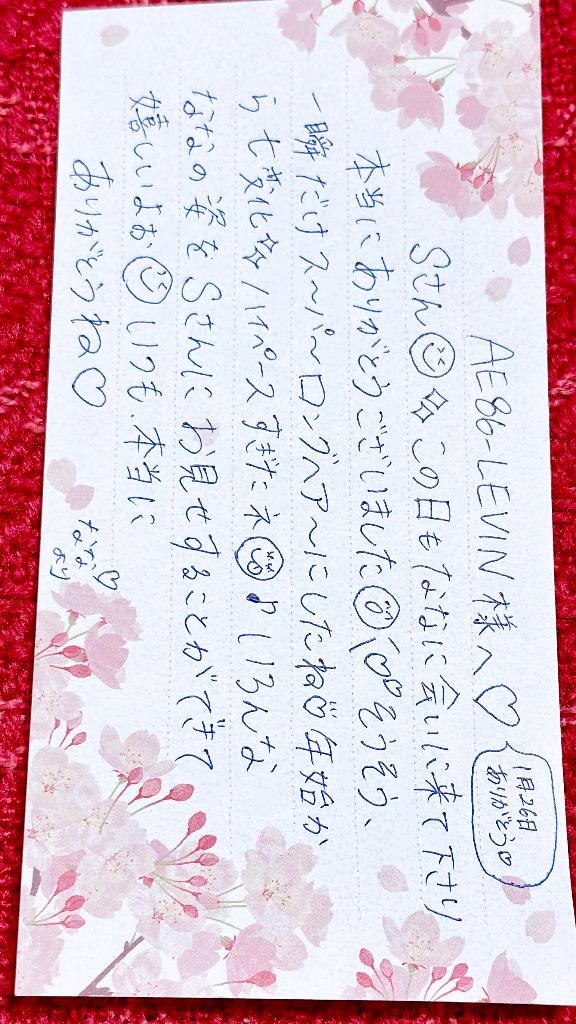 AE86-LEVIN 様へ♡
1月26日
ありがとう♡
Sさん☺✨この日もななに会いに来て下さり
本当にありがとうございました☺♡そうそう、
一瞬だけスーパーロングヘアーにしたね♡年始か
ら七変化✨ハイペースすぎたネ☺♪いろんな
ななの姿をSさんにお見せすることができて
嬉しいよお☺いつも、本当に
ありがとうね♡
なな♡
より